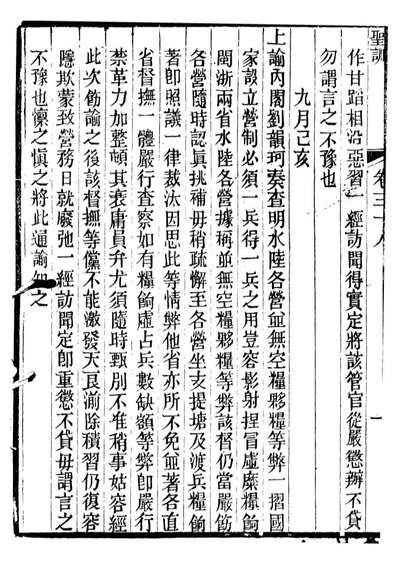 聖訓
卷三十八
一
作甘蹈相沿惡習一經訪聞得實定將該管官從嚴懲辦不貸
勿謂言之不豫也
九月己亥
上諭內閣劉韻珂奏查明水陸各營並無空糧夥糧等弊一摺國
家設立營制必須一兵得一兵之用豈容影射捏冒虛糜糧餉
閩浙兩省水陸各營據稱並無空糧夥糧等弊該督仍當嚴飭
各營隨時認真挑補毋稍疏懈至各營坐支提塘及渡兵糧餉
著卽照議一律裁汰因思此等情弊他省亦所不免並著各直
省督撫一體嚴行查察如有糧餉虛占兵數缺額等弊卽嚴行
禁革力加整頓其衰庸員弁尤須隨時甄別不准稍事姑容經
此次飭諭之後該督撫等儻不能激發天良湔除積習仍復容
隱欺蒙致營務日就廢弛一經訪聞定卽重懲不貸毋謂言之
不豫也懍之愼之將此通諭知之